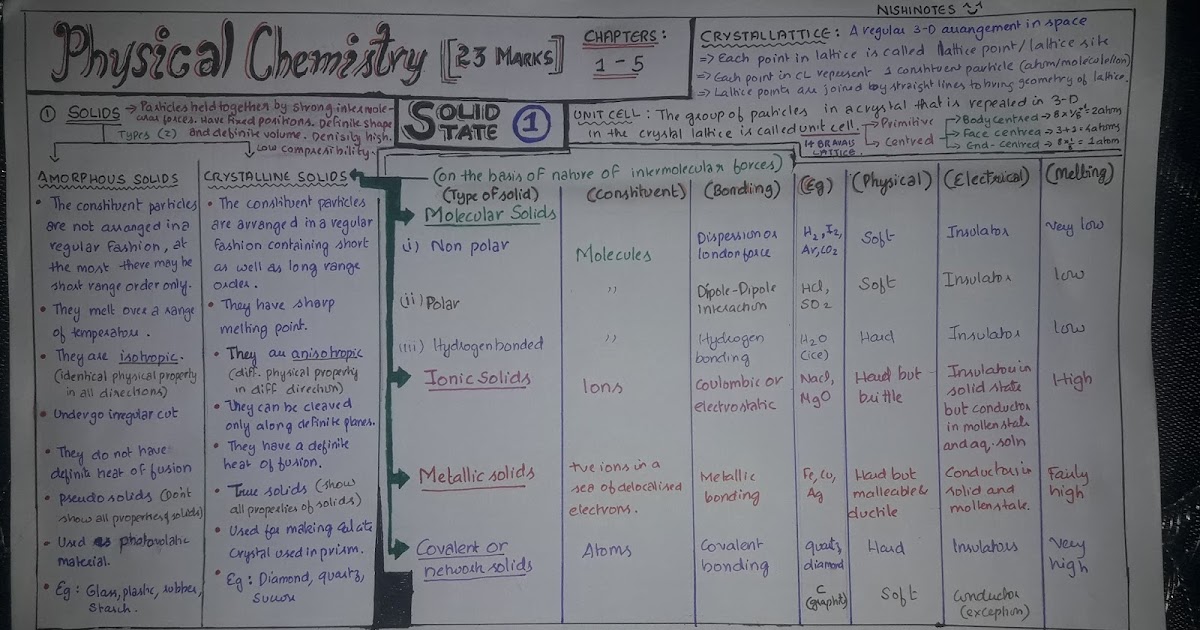 NISHINOTES
Physical Chemistry [23 MARKS]
CHAPTERS:
1-5
CRYSTAL LATTICE: A regular 3-D arrangement in space
⇒ Each point in lattice is called lattice point/lattice site
⇒ Each point in CL represent 1 constituent particle (atom/molecule/ion)
⇒ Lattice points are joined by straight lines to bring geometry of lattice.
① SOLIDS → Particles held together by strong intermole-
cular forces. Have fixed positions. Definite shape
and definite volume. Density high.
Low compressibility.
TYPES (2)
SOLID
STATE ①
UNIT CELL: The group of particles in a crystal that is repeated in 3-D
in the crystal lattice is called unit cell.
14 BRAVAIS
LATTICE.
→ Primitive
→ Centred
→ Body centred →
→ Face centred → 3+1=4 atoms
→ End-centred → = 1 atom
AMORPHOUS SOLIDS
• The constituent particles
are not arranged in a
regular fashion, at
the most there may be
short range order only.
• They melt over a range
of temperature.
• They are isotropic.
(identical physical property
in all directions)
• Undergo irregular cut
• They do not have
definite heat of fusion
• pseudo solids (Don't
show all properties of solids)
• Used as photovoltaic
material.
• Eg: Glass, plastic, rubber,
Starch.
CRYSTALLINE SOLIDS
• The constituent particles
are arranged in a regular
fashion containing short
as well as long range
order.
• They have sharp
melting point.
• They are anisotropic
(diff. physical property
in diff direction)
• They can be cleaved
only along definite planes.
• They have a definite
heat of fusion.
• True solids (show
all properties of solids)
• Used for making
crystal used in prism.
• Eg: Diamond, quartz,
(on the basis of nature of intermolecular forces)
(Type of solid) (Constituent) (Bonding) (Eg) (Physical) (Electrical) (Melting)
Molecular Solids
i) Non polar Molecules Dispersion or london force H₂, I₂, Ar, CO₂ Soft Insulator very low
(ii) Polar ,, Dipole-Dipole interaction HCl, SO₂ Soft Insulator low
(iii) Hydrogen bonded ,, Hydrogen bonding H₂O (ice) Hard Insulator low
Ionic Solids Ions Coulombic or electrostatic Nacl, MgO Hard but brittle Insulator in solid state but conductor in molten state and aq. soln High
Metallic solids +ve ions in a sea of delocalised electrons. Metallic bonding Fe, Cu, Ag Hard but malleable & ductile Conductors in solid and molten state. Fairly high
Covalent or network solids Atoms Covalent bonding quartz, diamond Hard Insulators Very high
C (graphite) Soft conductor (exception)